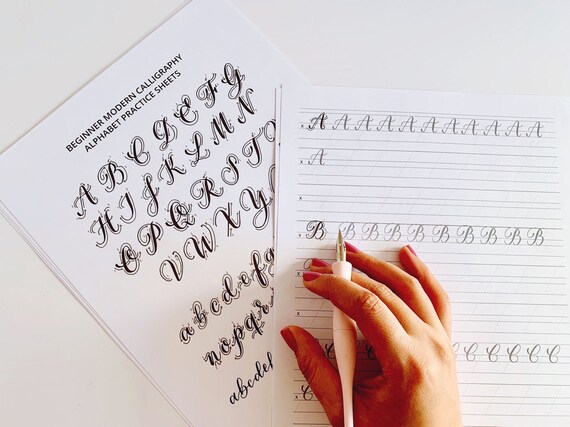 BEGINNER MODERN CALLIGRAPHY
ALPHABET PRACTICE SHEETS
A B C D E F G
H I J K L M N
O P Q R S T
V W X Y
a b c d e f g
n o p q r
a b c d e f
x A A A A A A A A A A A
x A
x
x B B B B B B B B B B
x
C C C C C C
x C
x